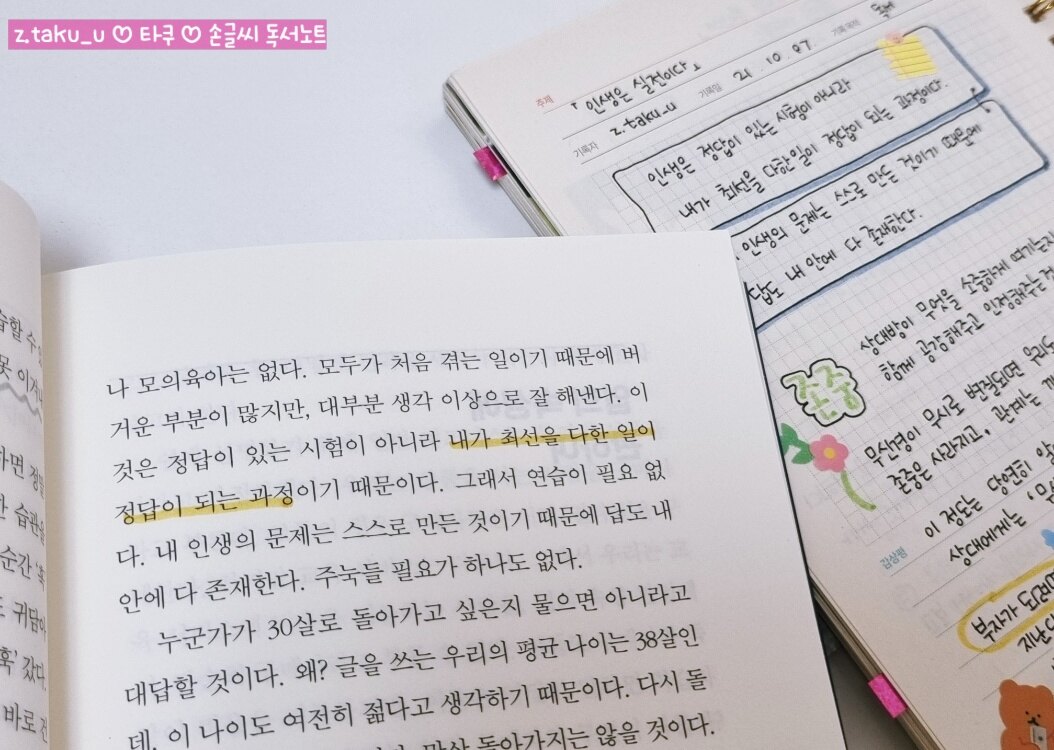 z.taku_u ♡ 타쿠 ♡ 손글씨 독서노트
습할 수
못 이겨
하면 정말
한 습관을
순간 '훅
도 귀담아
훅' 갔다.
바로 전
나 모의육아는 없다. 모두가 처음 겪는 일이기 때문에 버
거운 부분이 많지만, 대부분 생각 이상으로 잘 해낸다. 이
것은 정답이 있는 시험이 아니라 내가 최선을 다한 일이
정답이 되는 과정이기 때문이다. 그래서 연습이 필요 없
다. 내 인생의 문제는 스스로 만든 것이기 때문에 답도 내
안에 다 존재한다. 주눅들 필요가 하나도 없다.
누군가가 30살로 돌아가고 싶은지 물으면 아니라고
대답할 것이다. 왜? 글을 쓰는 우리의 평균 나이는 38살인
데, 이 나이도 여전히 젊다고 생각하기 때문이다. 다시 돌
막상 돌아가지는 않을 것이다.
주제 「인생은 실전이다」
기록자 z.taku_u 기록일 21. 10. 07. 기록국역 독서
인생은 정답이 있는 시험이 아니라
내가 최선을 다한일이 정답이 되는 과정이다.
인생의 문제는 스스로 만든 것이기 때문에
답도 내 안에 다 존재한다.
존중
상대방이 무엇을 소중하게 여기는지
함께 공감해주고 인정해주는 것
무신경이 무시로 변질되면
존중은 사라지고, 관계는
이 정도는 당연히
상대에게는
감상평
부자가 되려면
지난